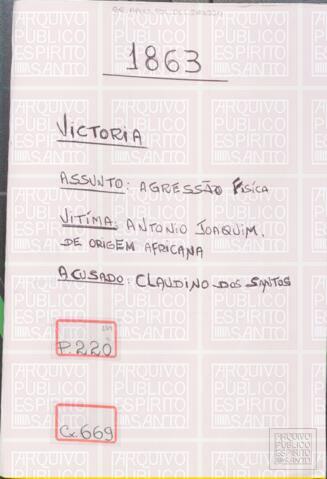 1863
VICTORIA
ASSUNTO: AGRESSÃO FISÍCA
VITIMA: ANTONIO JOAQUIM.
DE ORIGEM AFRICANA
ACUSADO: CLAUDINO DOS SANTOS
P.220
Cx.669
ARQUIVO
PÚBLICO
ESPÍRITO
SANTO